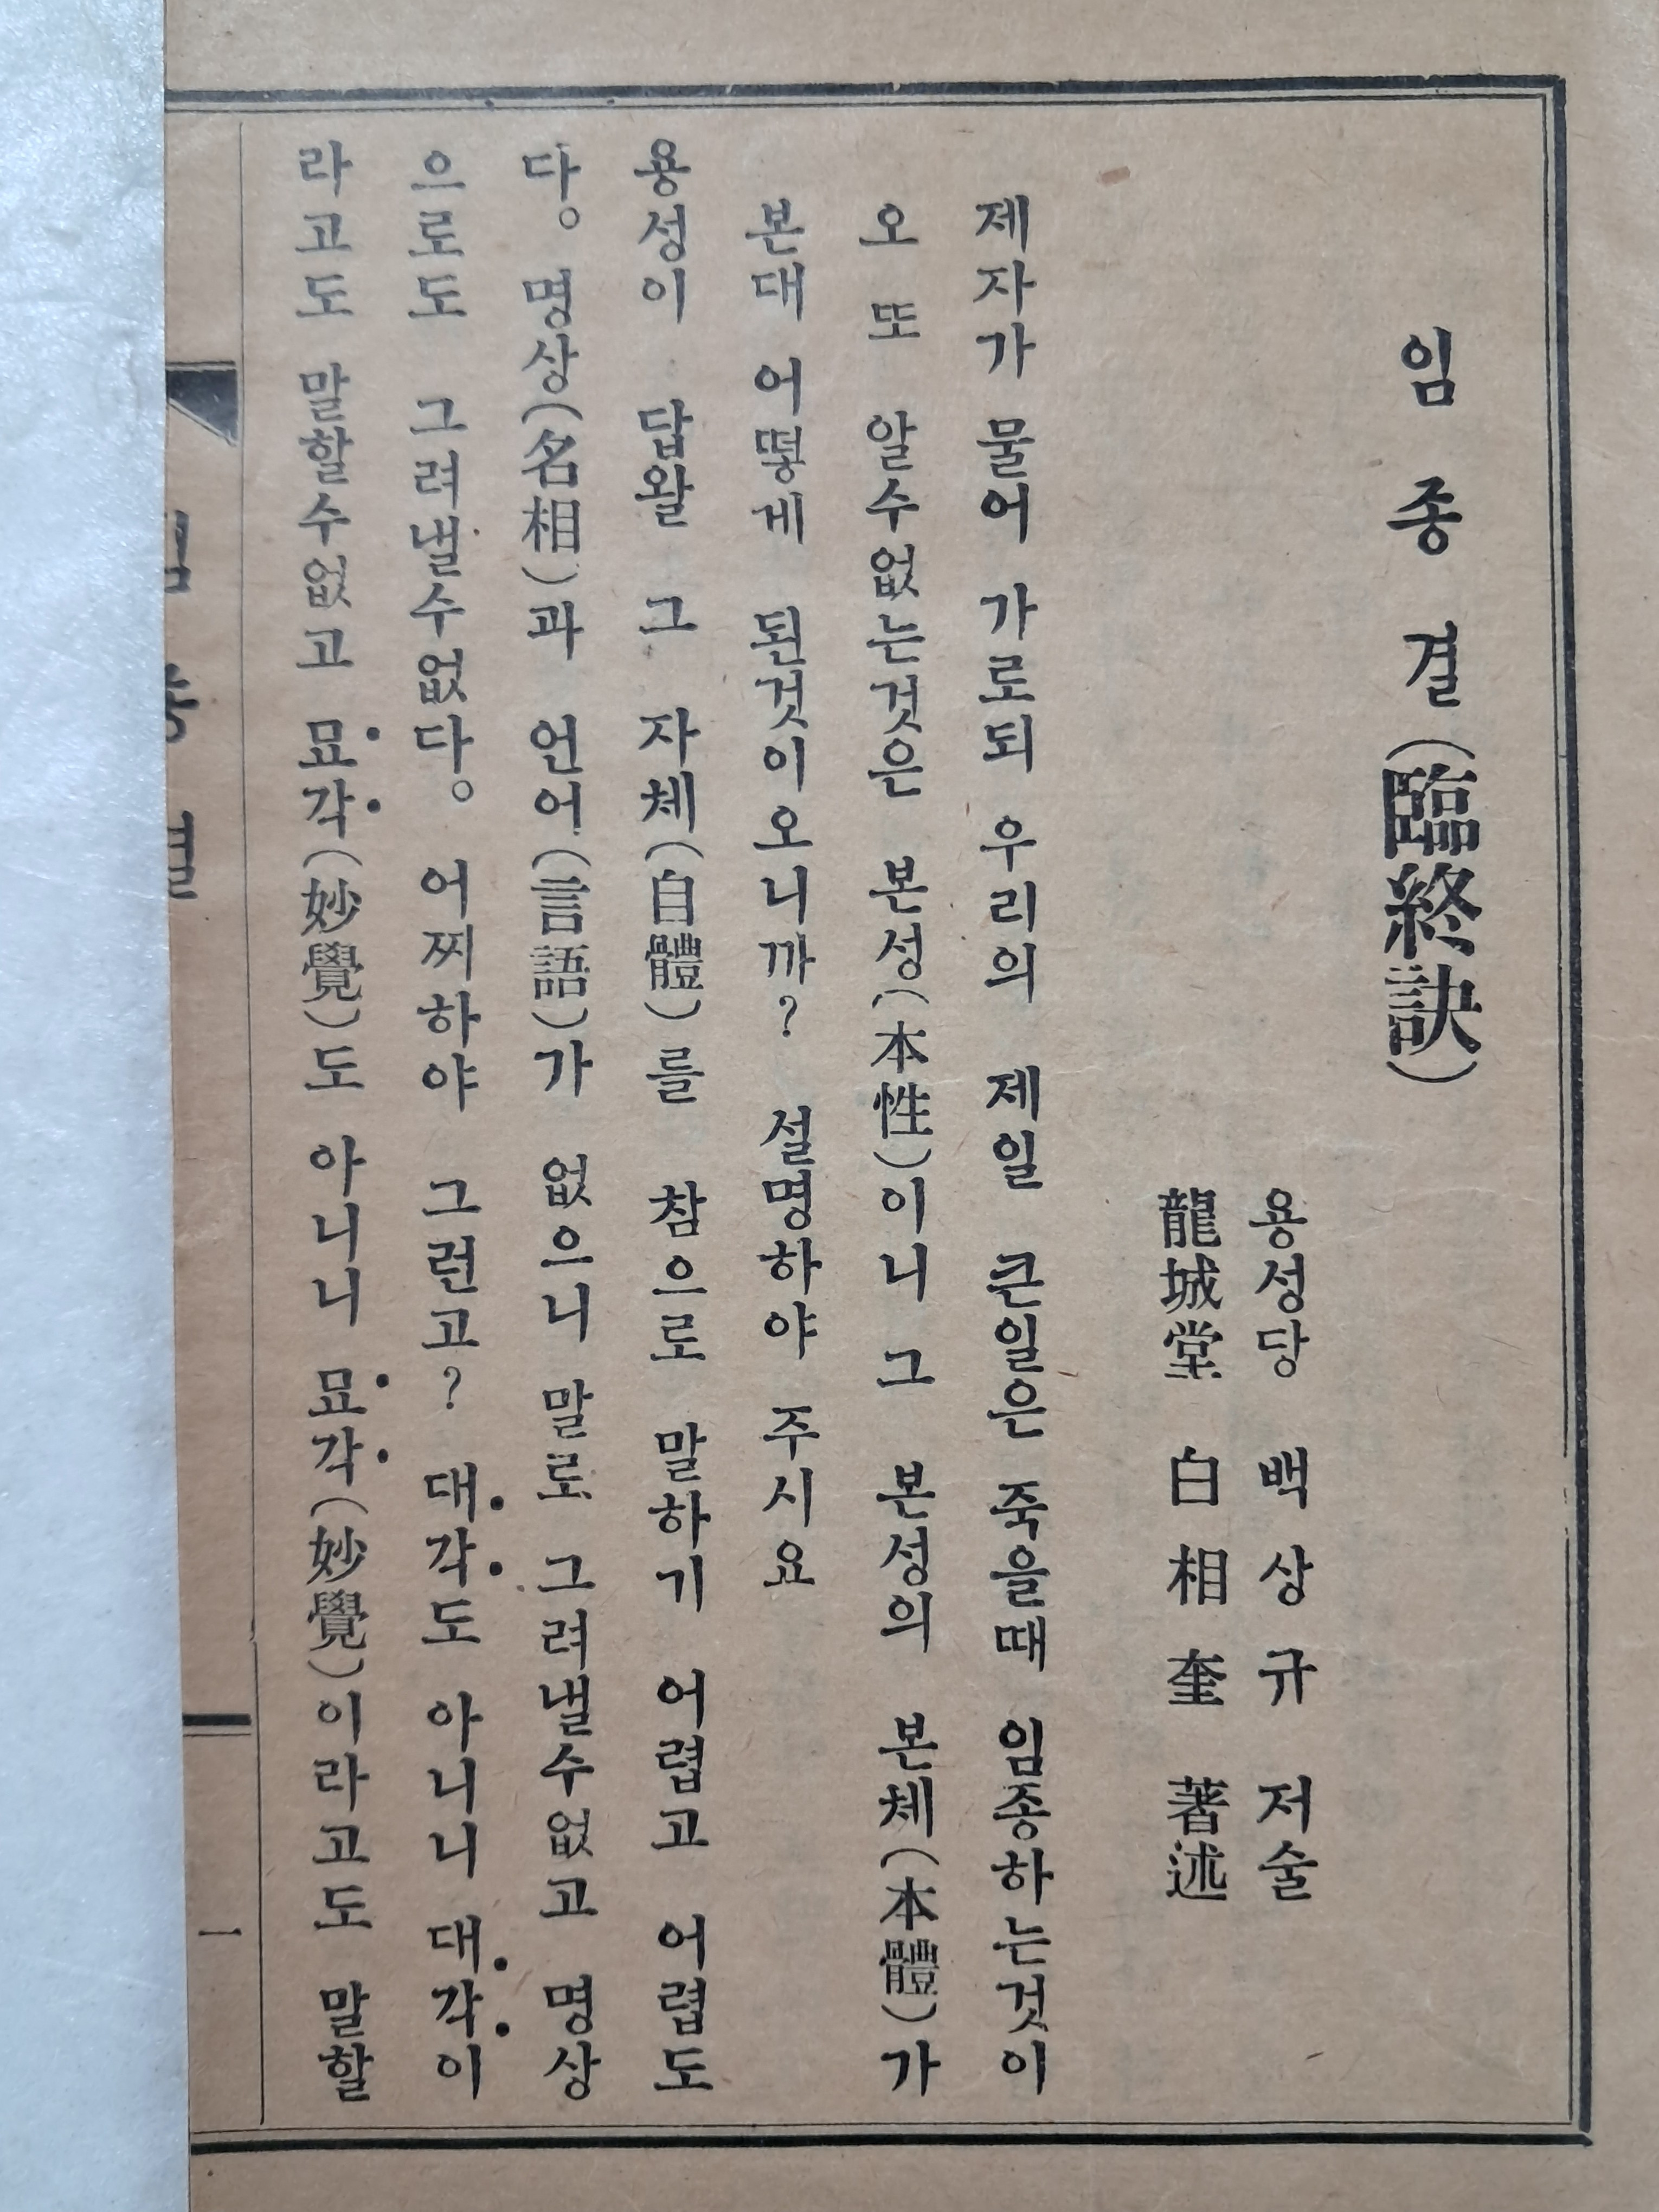 임종결(臨終訣)
용성당 백상규 저술
龍城堂 白相奎 著述
제자가 물어 가로되 우리의 제일 큰일은 죽을때 임종하는것이
오 또 알수없는것은 본성(本性)이니 그 본성의 본체(本體)가
본대 어떻게 된것이오니까? 설명하야 주시요
용성이 답왈 그 자체(自體)를 참으로 말하기 어렵고 어렵도
다。 명상(名相)과 언어(言語)가 없으니 말로 그려낼수없고 명상
으로도 그려낼수없다。 어찌하야 그런고? 대각도 아니니 대각이
라고도 말할수없고 묘각(妙覺)도 아니니 묘각(妙覺)이라고도 말할
임종결
一